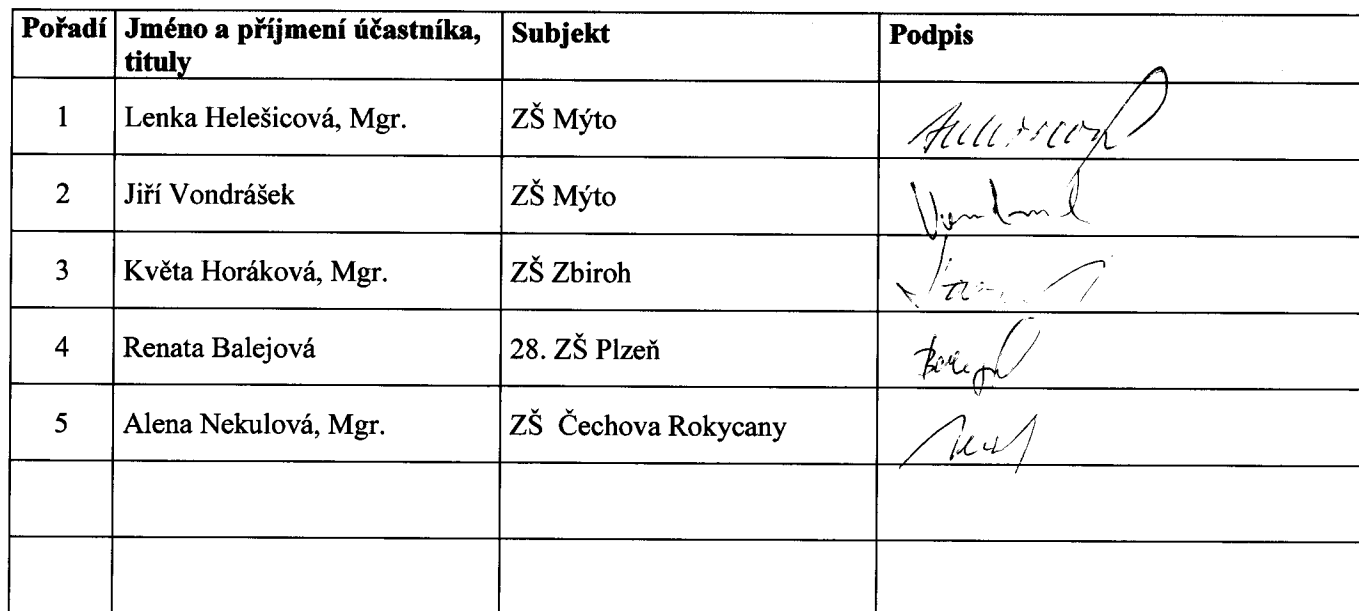 Pořadí Jméno a příjmení účastníka, Subjekt Podpis
tituly
1 Lenka Helešicová, Mgr. ZŠ Mýto
2 Jiří Vondrášek ZŠ Mýto
3 Květa Horáková, Mgr. ZŠ Zbiroh
4 Renata Balejová 28. ZŠ Plzeň
5 Alena Nekulová, Mgr. ZŠ Čechova Rokycany